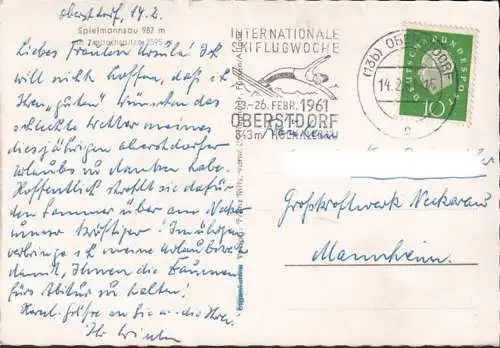 Oberstdorf, 14.2.
Spielmannsau 987 m
Liebes Fräulein Ursula! Ich
will nicht hoffen, daß ich
Ihren „guten" Wünschen das
schlechte Wetter meines
diesjährigen Oberstdorfer
Urlaubs zu danken habe.
Hoffentlich strahlt sie dafür
den Sommer über am Neckar
umso kräftiger! Im übrigen
verbringe ich meine Urlaubszeit
damit, Ihnen die Daumen
fürs Abitur zu halten!
Herzl. Grüße an Sie u. die Ihren!
Ihr
INTERNATIONALE
SKIFLUGWOCHE
-26. FEBR. 1961
OBERSTDORF
843m
(13b) OBERSTDORF
14.2.
DEUTSCHE BUNDESPOST
10
Großkraftwerk Neckarau
Mannheim.